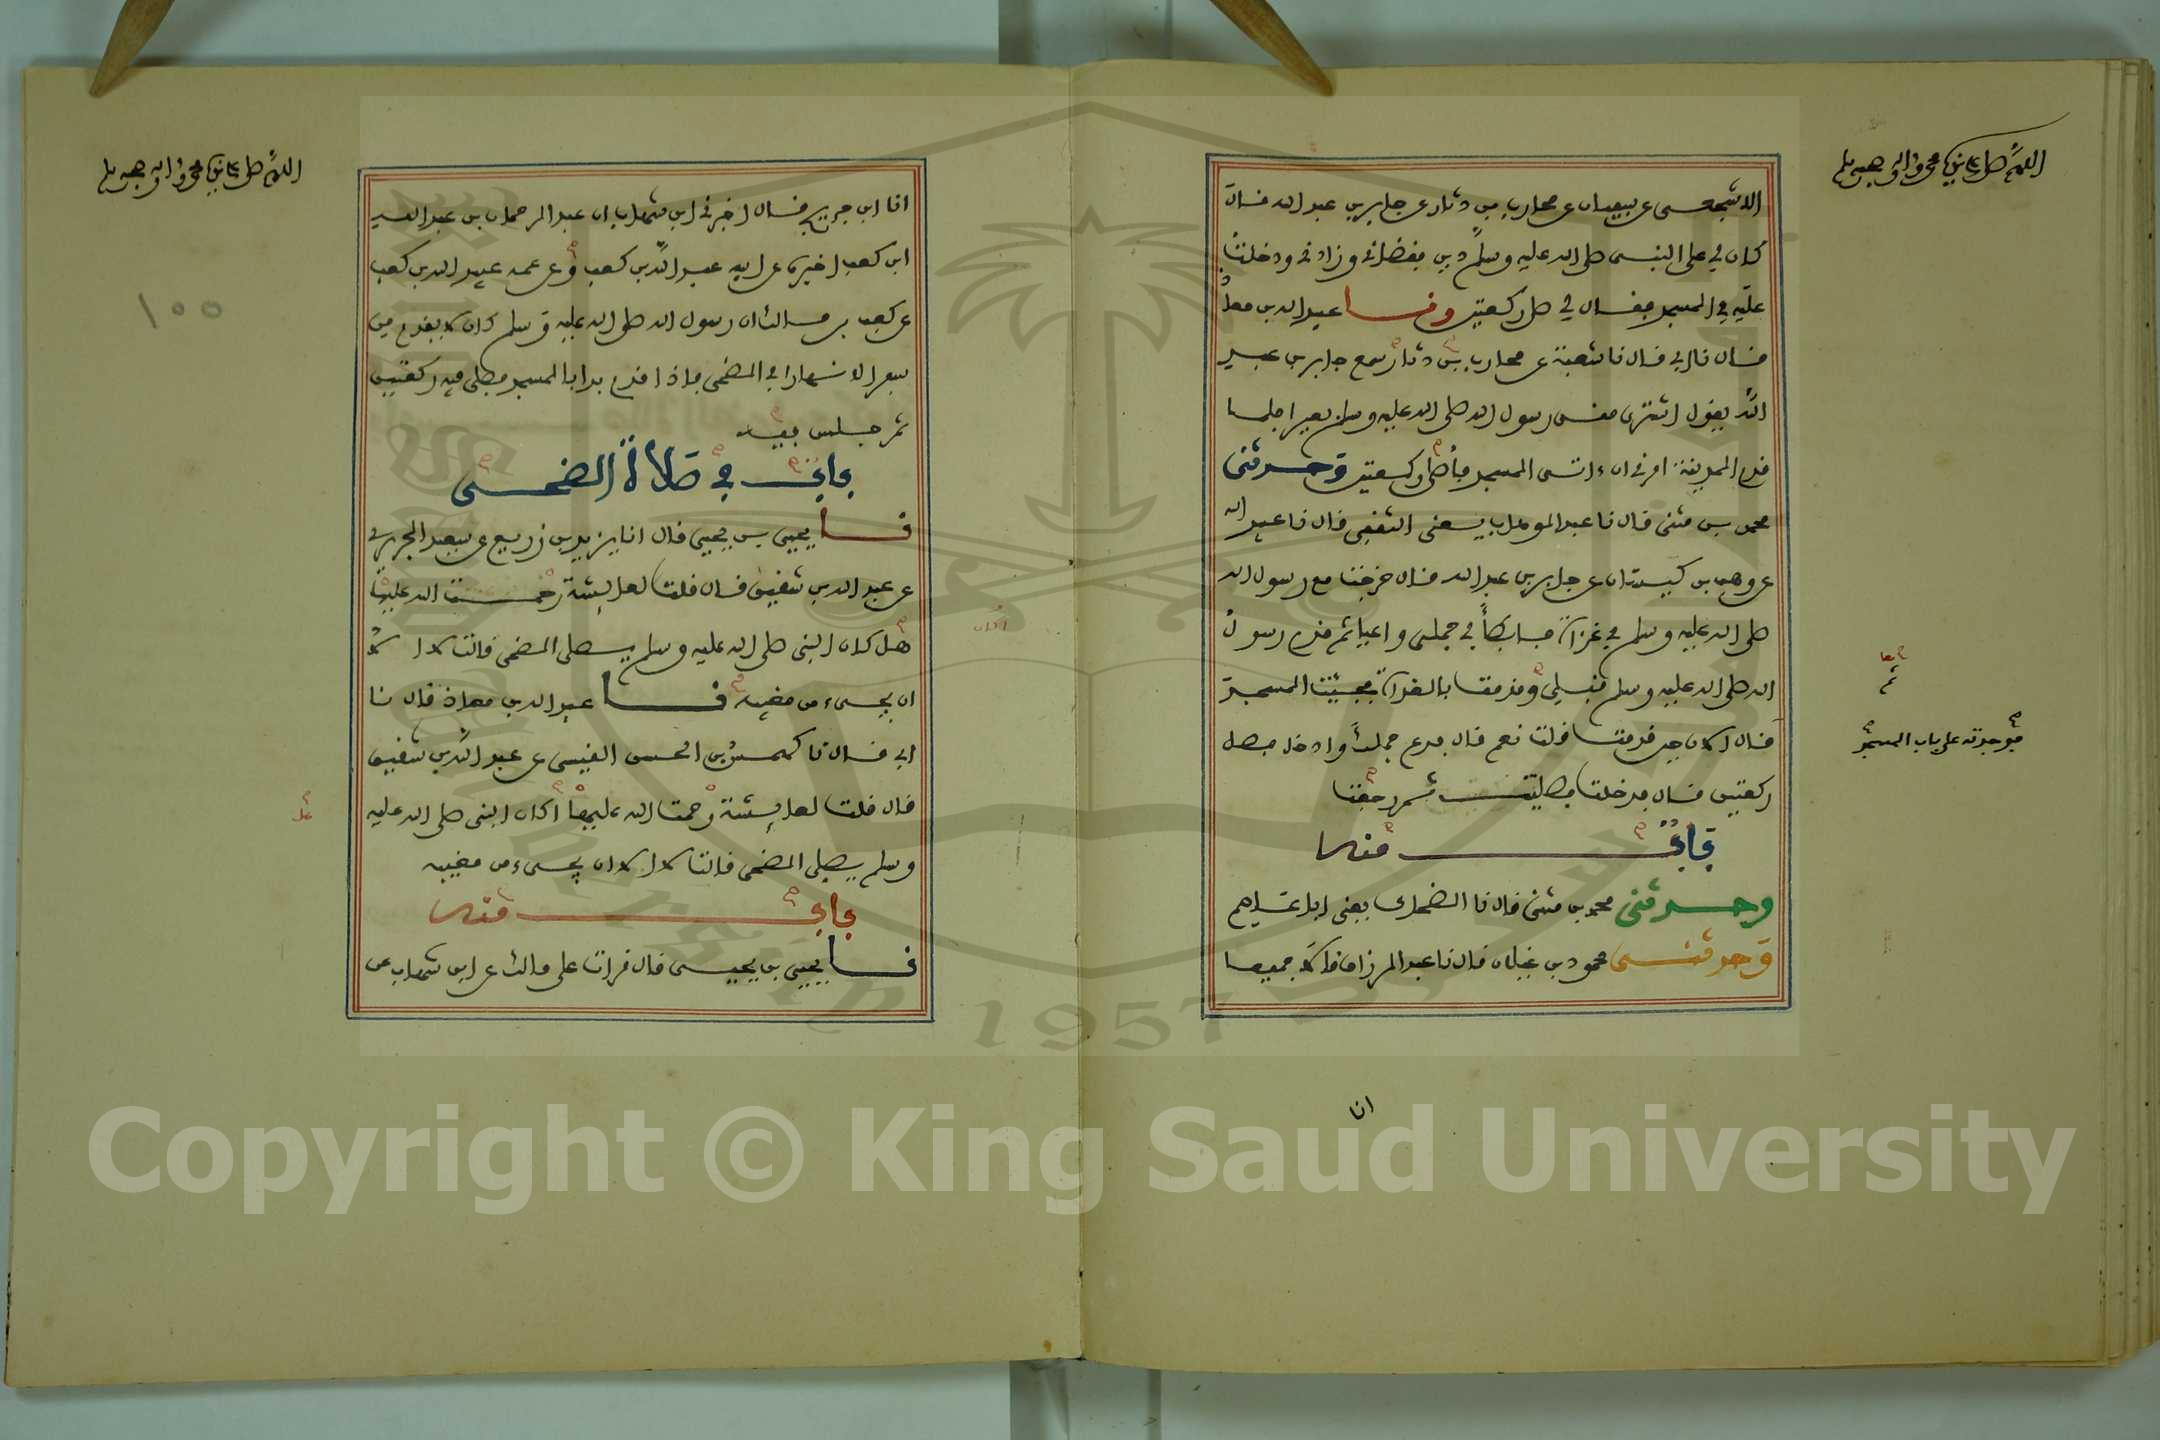 اللهم صل على نبينا محمد واله وصحبه وسلم
الاشجعي عن سفيان عن محارب بن دثار عن جابر بن عبد الله قال
كان لي على النبي صلى الله عليه وسلم دين فقضاني وزادني ودخلت
عليه في المسجد فقال لي صل ركعتين ونا عبيد الله بن معاذ
قال نا ابي قال نا شعبة عن محارب بن دثار سمع جابر بن عبد
الله يقول اشترى مني رسول الله صلى الله عليه وسلم بعيرا فلما
قدم المدينة امرني ان ءاتي المسجد فأصلي ركعتين وحدثني
محمد بن مثنى قال نا عبد الوهاب يعني الثقفي قال نا عبيد الله
عن وهب بن كيسان عن جابر بن عبد الله قال خرجنا مع رسول الله
صلى الله عليه وسلم في غزاة فابطأ بي جملي واعيا ثم قدم رسول
الله صلى الله عليه وسلم قبلي وقدمت بالغداة فجئت المسجد
فوجدته على باب المسجد
قال الان حين قدمت قلت نعم قال فدع جملك وادخل فصل
ركعتين قال فدخلت فصليت ثم رجعت
باب منه
وحدثني محمد بن مثنى قال نا الضحاك يعني ابا عاصم
وحدثني محمود بن غيلان قال نا عبد الرزاق قالا جميعا
انا
اللهم صل على نبينا محمد واله وصحبه وسلم
١٠٠
انا ابن جريج قال اخبرني ابن شهاب ان عبد الرحمان بن عبد الله
ابن كعب اخبره عن ابيه عبد الله بن كعب وعن عمه عبيد الله بن كعب
عن كعب بن مالك ان رسول الله صلى الله عليه وسلم كان لا يقدم من
سفر الا نهارا في الضحى فاذا قدم بدا بالمسجد فصلى فيه ركعتين
ثم جلس فيه
باب في صلاة الضحى
نا يحيى بن يحيى قال انا يزيد بن زريع عن سعيد الجريري
عن عبد الله بن شقيق قال قلت لعايشة رحمت الله عليها
هل كان النبي صلى الله عليه وسلم يصلي الضحى قالت لا الا
ان يجيء من مغيبه نا عبيد الله بن معاذ قال نا
ابي قال نا كهمس بن الحسن القيسي عن عبد الله بن شقيق
قال قلت لعايشة رحمت الله عليها اكان النبي صلى الله عليه
وسلم يصلي الضحى قالت لا الا ان يجيء من مغيبه
باب منه
نا يحيى بن يحيى قال قرات على مالك عن ابن شهاب عن
Copyright © King Saud University
1957